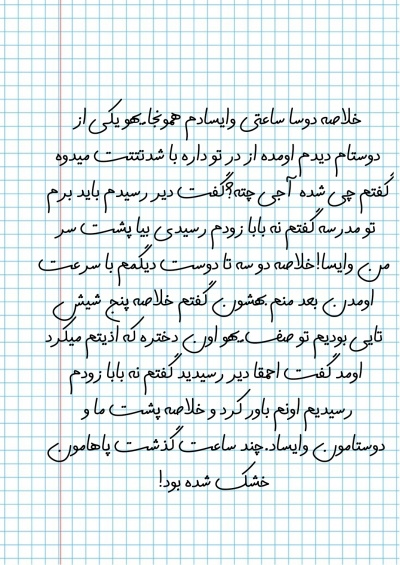 خلاصه دوسا ساعتی وایسادم همونجا.یهو یکی از
دوستام دیدم اومده از در تو داره با شدتتتت میدوه
گفتم چی شده آجی چته؟گفت دیر رسیدم باید برم
تو مدرسه گفتم نه بابا زودم رسیدی بیا پشت سر
من وایسا!خلاصه دو سه تا دوست دیگمم با سرعت
اومدن بعد منم بهشون گفتم خلاصه پنج شیش
تایی بودیم تو صف.یهو اون دختره که اذیتم میکرد
اومد گفت احمقا دیر رسیدید گفتم نه بابا زودم
رسیدیم اونم باور کرد و خلاصه پشت ما و
دوستامون وایساد.چند ساعت گذشت پاهامون
خشک شده بود!